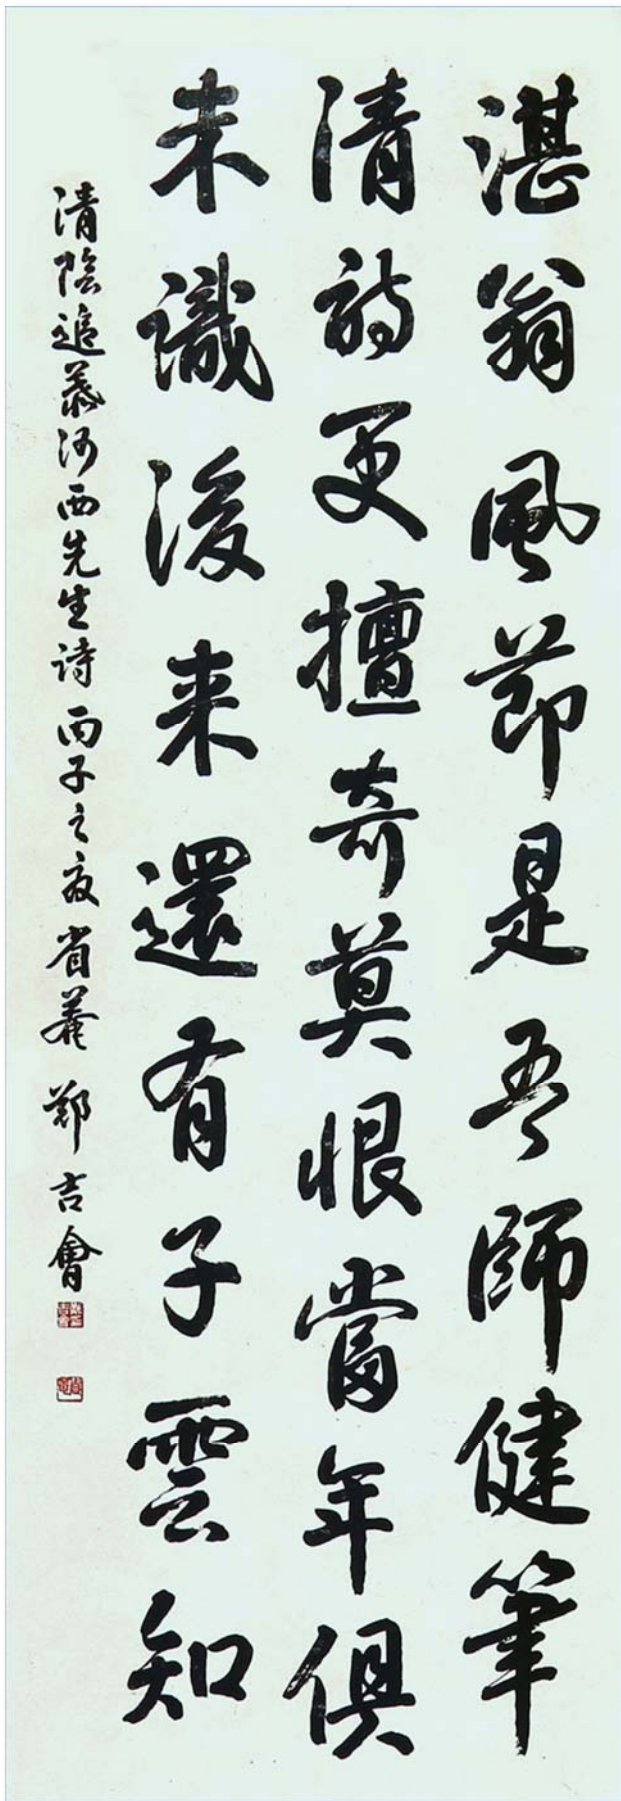 湛翁風節是吾師健筆
清詩更擅奇莫恨當年俱
未識後来還有子雲知
清陰追慕河西先生诗 丙子之夜 省菴 鄭吉會